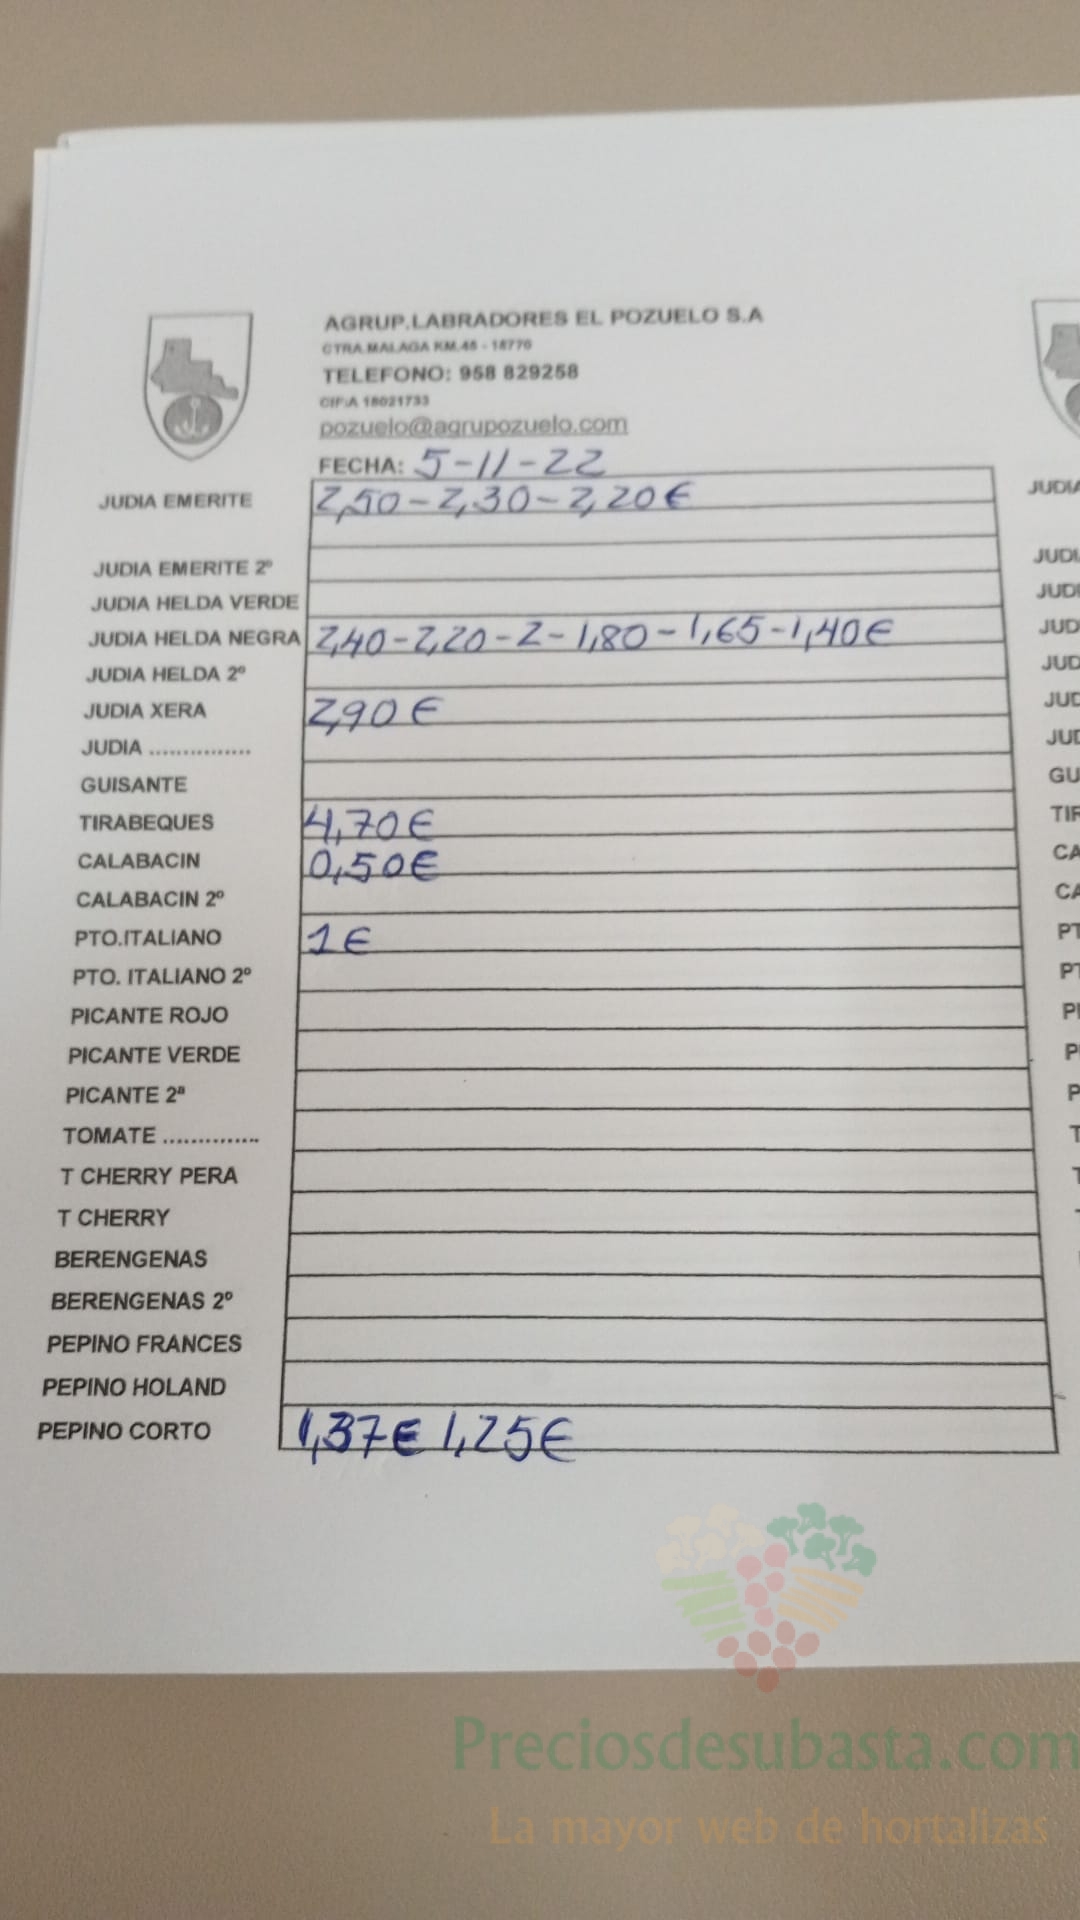 AGRUP.LABRADORES EL POZUELO S.A
CTRA.MALAGA KM.45 - 18770
TELEFONO: 958 829258
CIF:A 18021733
pozuelo@agrupozuelo.com
FECHA: 5-11-22
JUDIA EMERITE 2,50-2,30-2,20€
JUDIA EMERITE 2º
JUDIA HELDA VERDE
JUDIA HELDA NEGRA 2,40-2,20-2-1,80-1,65-1,40€
JUDIA HELDA 2º
JUDIA XERA 2,90€
JUDIA ...............
GUISANTE
TIRABEQUES 4,70€
CALABACIN 0,50€
CALABACIN 2º
PTO.ITALIANO 1€
PTO. ITALIANO 2º
PICANTE ROJO
PICANTE VERDE
PICANTE 2ª
TOMATE ..............
T CHERRY PERA
T CHERRY
BERENGENAS
BERENGENAS 2º
PEPINO FRANCES
PEPINO HOLAND
PEPINO CORTO 1,37€ 1,25€
Preciosdesubasta.com
La mayor web de hortalizas